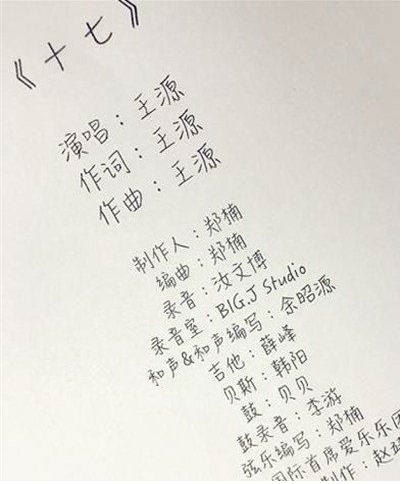 《十七》
演唱：王源
作词：王源
作曲：王源
制作人：郑楠
编曲：郑楠
录音：汝文博
录音室：BIG.J Studio
和声&和声编写：余昭源
吉他：薛峰
贝斯：韩阳
鼓：贝贝
鼓录音：李游
弦乐编写：郑楠
国际首席爱乐乐团
制作：赵